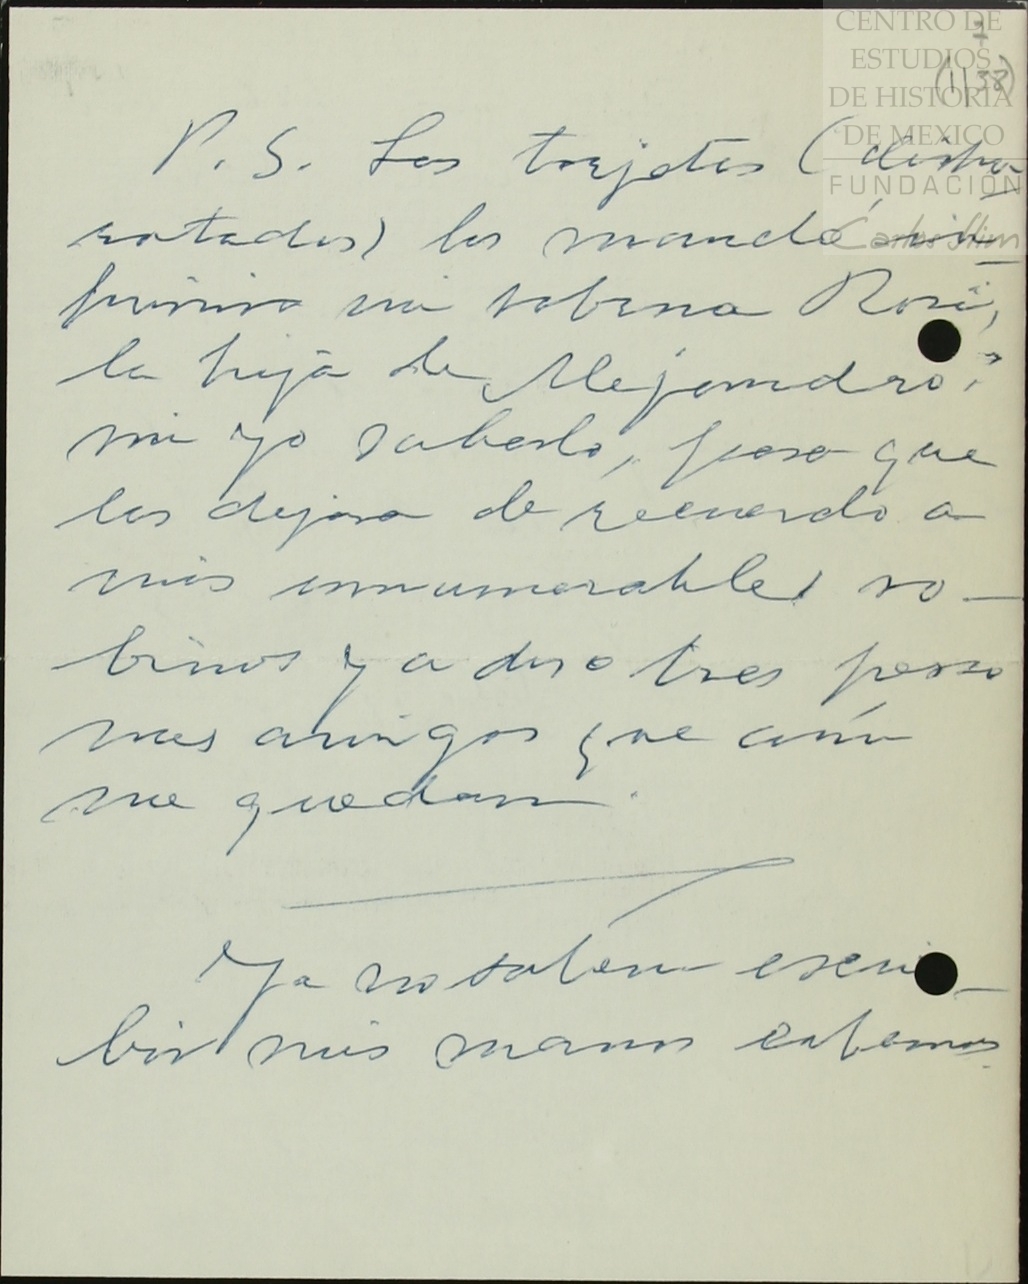 CENTRO DE
ESTUDIOS
DE HISTORIA
DE MEXICO
FUNDACIÓN
Carlos Slim
7
(1/38)
P. S. Las tarjetas (dispa-
ratadas) las mandó
mi sobrina Rosi,
la hija de Alejandro,
sin yo saberlo, para que
las dejara de recuerdo a
mis innumerables so-
brinos y a dos o tres perso
nas amigas que aún
me quedan.
Ya no saben escri-
bir mis manos enfermas.